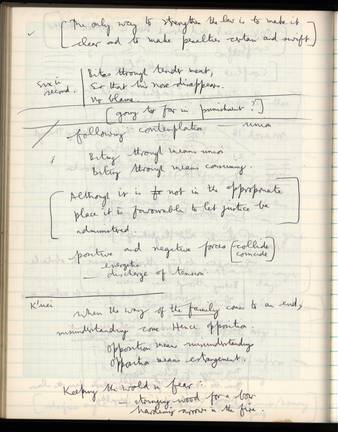 The only way to strengthen the law is to make it
clear and to make penalties certain and swift
Six in
second.
Bites through tender meat,
So that his nose disappears.
No blame
going too far in punishment?
following contemplation union
Biting through means union
Biting through means consuming.
Although it is not in the appropriate
place it is favourable to let justice be
administered.
positive and negative forces collide
coincide
energetic
— discharge of tension
K'uei
When the way of the family comes to an end,
misunderstanding comes. Hence opposition
Opposition means misunderstanding
Opposition means estrangement.
Keeping the world in fear:
— stringing wood for a bow
hardening arrows in the fire.